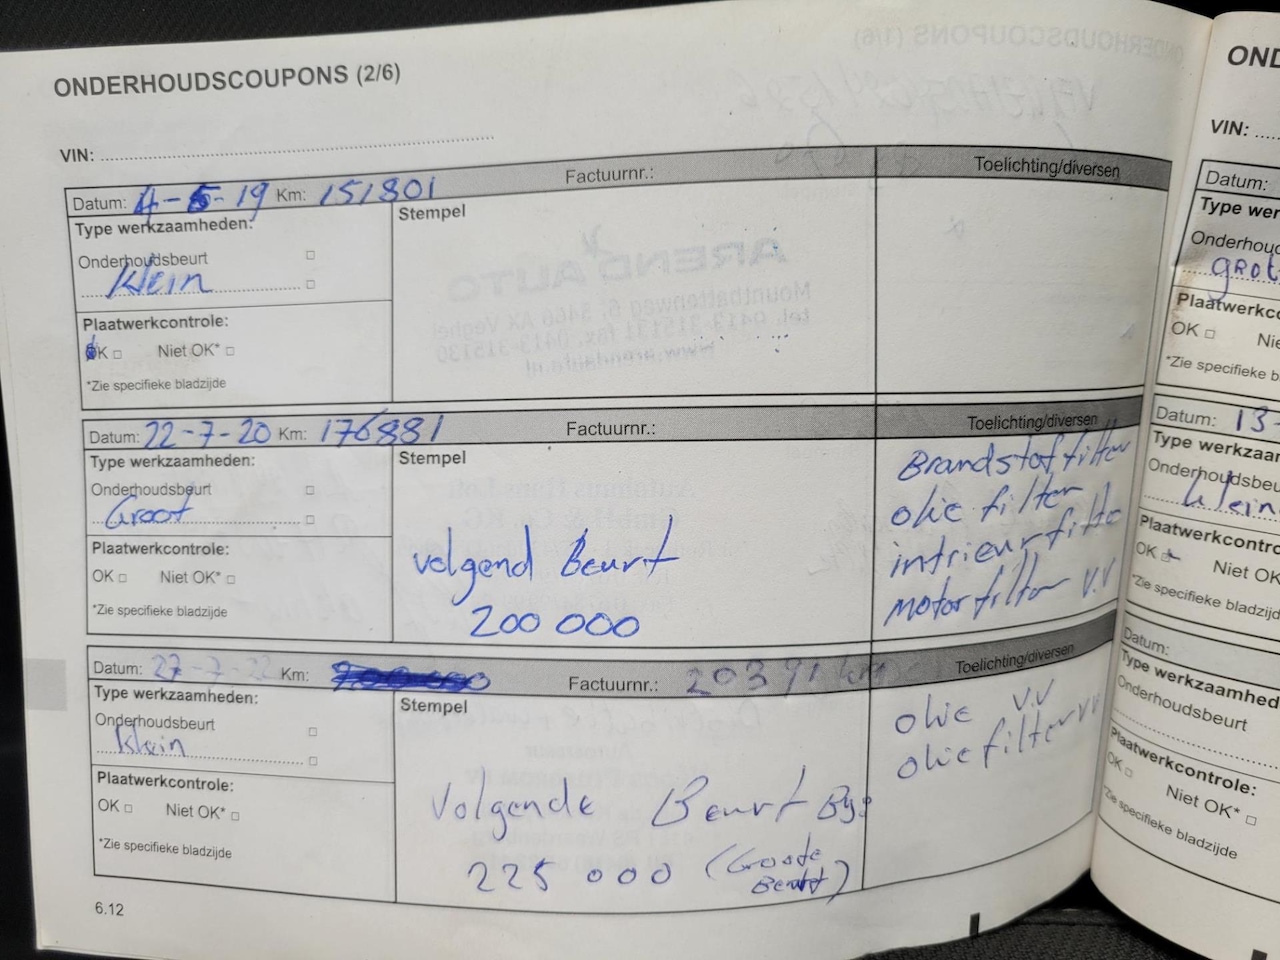 ONDERHOUDSCOUPONS (2/6)
VIN:
Datum: 4-5-19 Km: 151801 Factuurnr.: Toelichting/diversen
Type werkzaamheden: Stempel
Onderhoudsbeurt
Klein
Plaatwerkcontrole:
OK Niet OK*
*Zie specifieke bladzijde
Datum: 22-7-20 Km: 176881 Factuurnr.: Toelichting/diversen
Type werkzaamheden: Stempel
Onderhoudsbeurt
Groot
Plaatwerkcontrole:
OK Niet OK*
*Zie specifieke bladzijde
volgend Beurt
200 000
Brandstoffilter
olie filter
intrieurfilter
Motorfilter V.V
Datum: 27-7-22 Km: Factuurnr.: 20391 km Toelichting/diversen
Type werkzaamheden: Stempel
Onderhoudsbeurt
Klein
Plaatwerkcontrole:
OK Niet OK*
*Zie specifieke bladzijde
Volgende Beurt By:
225 000 (Groote
Beurt)
olie V.V
oliefilter VV
6.12
VIN:
Datum:
Type wer
Onderhoudsb
groot
Plaatwerkco
OK Nie
*Zie specifieke b
Datum: 13-
Type werkzaar
Onderhoudsbeu
klein
Plaatwerkcontro
OK Niet OK
*Zie specifieke bladz
Datum:
Type werkzaamhed
Onderhoudsbeurt
Plaatwerkcontrole:
OK Niet OK*
*Zie specifieke bladzijde